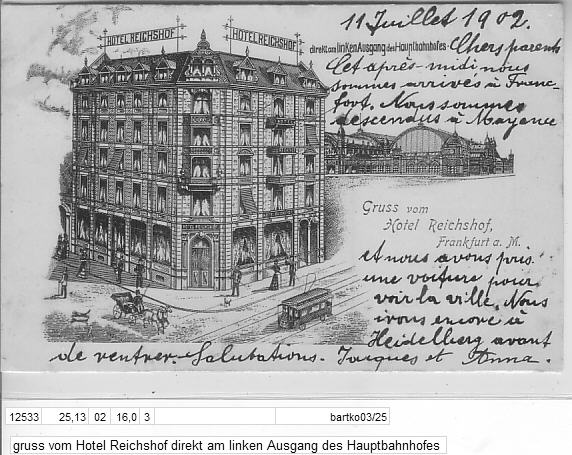 HOTEL REICHSHOF
HOTEL REICHSHOF
11 Juillet 1902.
direkt am linken Ausgang des Hauptbahnhofes.
Chers parents
Cet après-midi nous
sommes arrivés à Franc-
fort. Nous sommes
descendus à Mayence
Gruss vom
Hotel Reichshof,
Frankfurt a. M.
et nous avons pris
une voiture pour
voir la ville. Nous
irons encore à
Heidelberg avant
de rentrer. Salutations. Jacques et Anna.
12533 25,13 02 16,0 3 bartko03/25
gruss vom Hotel Reichshof direkt am linken Ausgang des Hauptbahnhofes